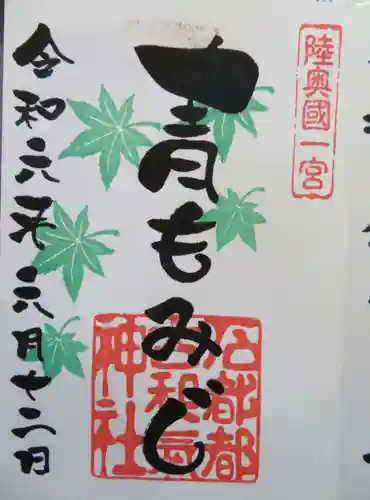 陸奥國一宮
青もみじ
石都都
古和氣
神社
令和六年六月十二日